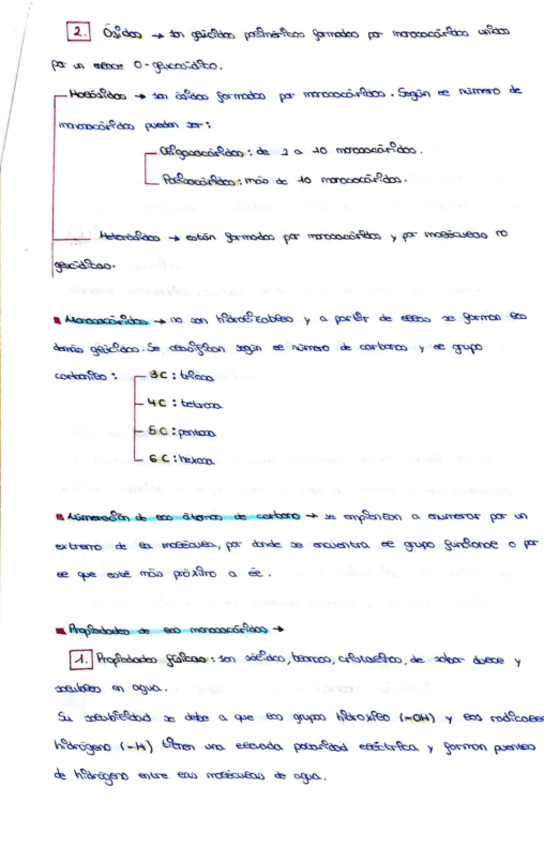 2. Ósidos → son glúcidos poliméricos formados por monosacáridos unidos
por un enlace O-glucosídico.
Holósidos → son ósidos formados por monosacáridos. Según el número de
monosacáridos pueden ser:
Oligosacáridos: de 2 a 10 monosacáridos.
Polisacáridos: más de 10 monosacáridos.
Heterósidos → están formados por monosacáridos y por moléculas no
glucídicas.
Monosacáridos → no son hidrolizables y a partir de ellos se forman los
demás glúcidos. Se clasifican según el número de carbonos y el grupo
carbonilo:
3C: triosa
4C: tetrosa
5C: pentosa
6C: hexosa
Numeración de los átomos de carbono → se empiezan a enumerar por un
extremo de la molécula, por donde se encuentra el grupo funcional o por
el que esté más próximo a él.
Propiedades de los monosacáridos →
1. Propiedades físicas: son sólidos, blancos, cristalinos, de sabor dulce y
solubles en agua.
Su solubilidad se debe a que los grupos hidroxilo (-OH) y los radicales
hidrógeno (-H) tienen una elevada polaridad eléctrica y forman puentes
de hidrógeno entre las moléculas de agua.